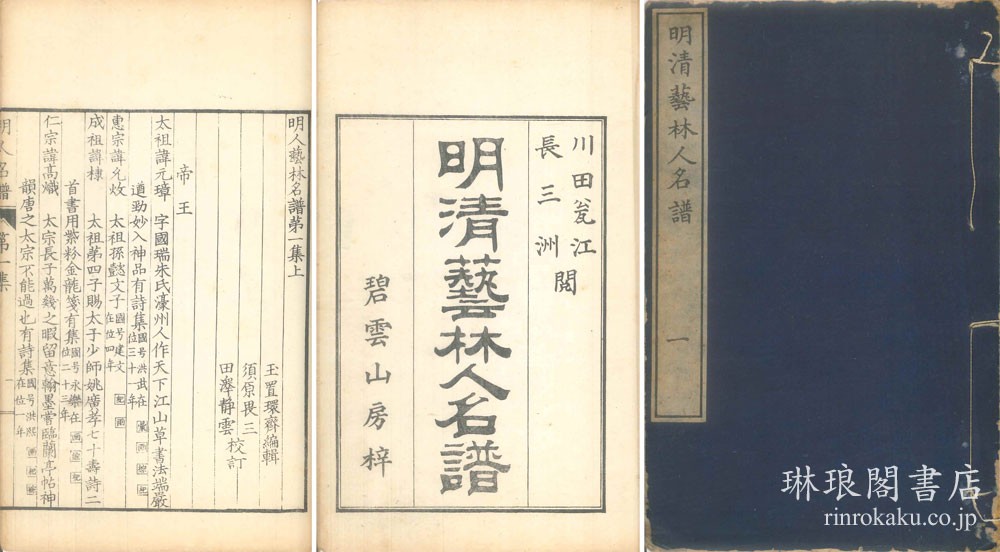 明清藝林人名譜
一
川田瓮江
長三洲 閲
明清藝林人名譜
碧雲山房梓
明人藝林名譜第一集上
玉置環齊編輯
須原畏三
田擧靜雲 校訂
帝王
太祖諱元璋 字國瑞朱氏濠州人作天下江山草書法端嚴
遒勁妙入神品有詩集 國号洪武在位三十一年
惠宗諱允炆 太祖孫懿文子 國号建文在位四年
成祖諱棣 太祖第四子賜太子少師姚廣孝七十壽詩二
首書用紫粉金龍箋有集 國号永樂在位二十三年
仁宗諱高熾 太宗長子萬幾之暇留意翰墨嘗臨蘭亭帖神
韻唐之太宗不能過也有詩集 國号洪熙在位一年
明人名譜 第一集
琳琅閣書店
rinrokaku.co.jp